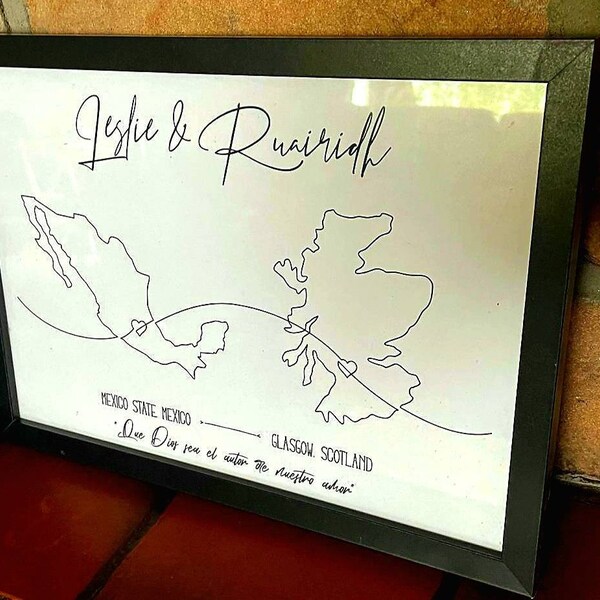 Leslie & Ruairidh
MEXICO STATE, MEXICO
GLASGOW, SCOTLAND
"Que Dios sea el autor de nuestro amor"